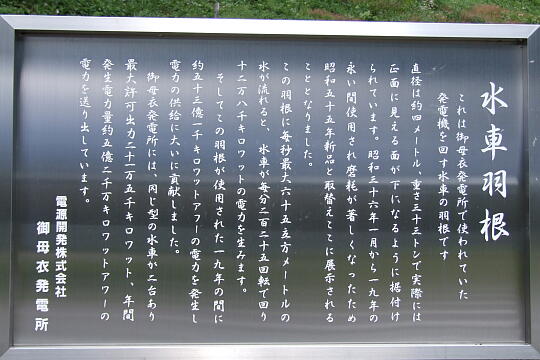 水車羽根
これは御母衣発電所で使われていた
発電機を回す水車の羽根です
直径は約四メートル、重さ三十三トンで実際には
正面に見える面が下になるように据付け
られています。昭和三十六年一月から一九年の
永い間使用され磨耗が著しくなったため
昭和五十五年新品と取替えここに展示される
こととなりました。
この羽根に毎秒最大六十五立方メートルの
水が流れると、水車が毎分二百二十五回転で回り
十二万八千キロワットの電力を生みます。
そしてこの羽根が使用された一九年の間に
約五十三億一千キロワットアワーの電力を発生し
電力の供給に大いに貢献しました。
御母衣発電所には、同じ型の水車が二台あり
最大許可出力二十一万五千キロワット、年間
発生電力量約五億二千万キロワットアワーの
電力を送り出しています。
電源開発株式会社
御母衣発電所